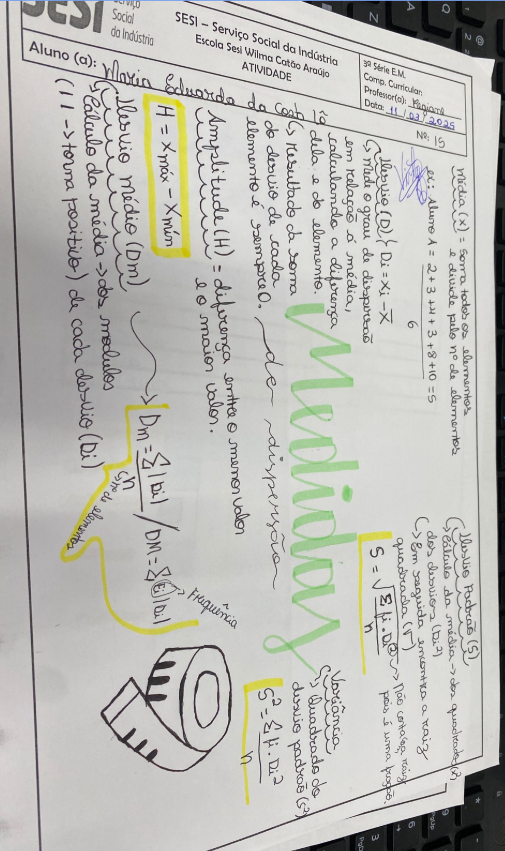 SESI
Serviço
Social
da Indústria
SESI – Serviço Social da Indústria
Escola Sesi Wilma Catão Araújo
ATIVIDADE
3ª Série E.M.
Comp. Curricular:
Professor(a): Regiani
Data: 11/03/2025
Aluno (a): Maria Eduarda da Costa
Nº: 15
Média (x̄) = soma todos os elementos
e divide pelo nº de elementos
ex: Aluno A = 2+3+4+3+8+10 = 5
6
Desvio (D) { Di = xi - x̄
↳ Mede o grau de dispersão
em relação à média,
calculando a diferença
dela e do elemento.
↳ resultado da soma
do desvio de cada
elemento é sempre 0.
Medidas
de dispersão
Amplitude (H) = diferença entre o menor valor
e o maior valor.
H = xmáx - xmín
Desvio médio (Dm)
↳ Cálculo da média → dos módulos
(| | → torna positivo) de cada desvio (Di)
Dm = ∑|Di| / DM = ∑fi|Di|
n
↳ nº de elementos
→ frequência
Desvio Padrão (S)
↳ Cálculo da média → dos quadrados (x²)
dos desvios (Di²)
↳ Em seguida encontra a raiz
quadrada (√)
S = √∑fi·Di²
n
→ Não corta a raiz
pois é uma fração.
Variância
↳ Quadrado do
desvio padrão (S²)
S² = ∑fi·Di²
n